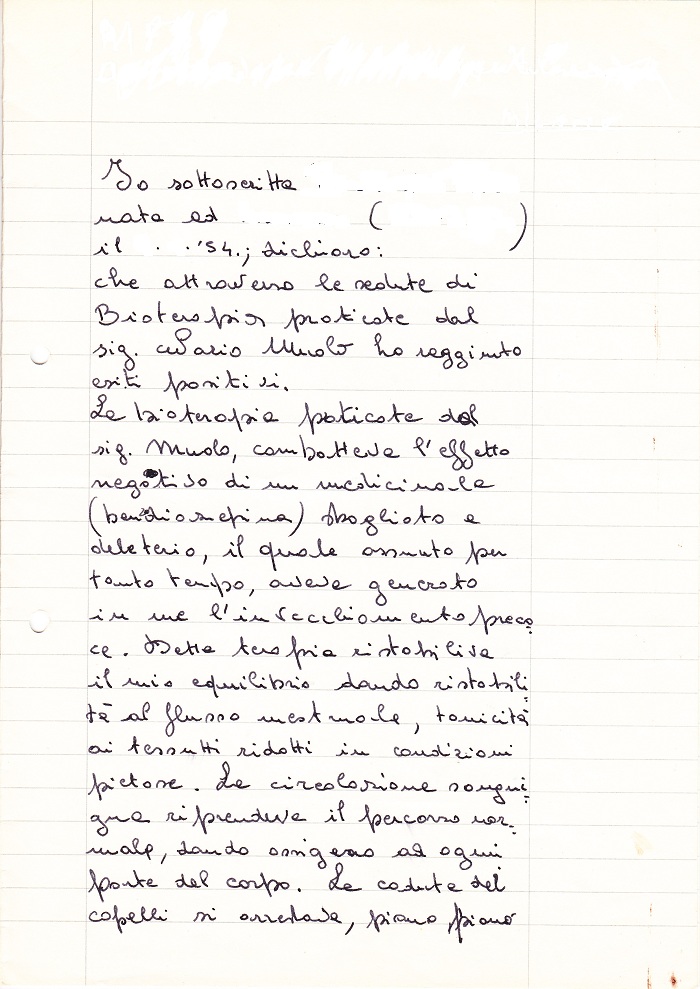 Io sottoscritta
nata ad (            )
il . . '54.; dichiaro:
che attraverso le sedute di
Bioterapia praticate dal
sig. Mario Muolo ho raggiunto
esiti positivi.
La bioterapia paticate dal
sig. Muolo, combatteva l'effetto
negativo di un medicinale
(                ) sbagliato e
deleterio, il quale assunto per
tanto tempo, aveva generato
in me l'invecchiamento preco
ce. Detta terapia ristabiliva
il mio equilibrio dando ristabili-
tà al flusso mestruale, tonicità
ai tessutti ridotti in condizioni
pietose. La circolazione sangui-
gna riprendeva il percorso nor-
male, dando ossigeno ad ogni
parte del corpo. La caduta dei
capelli si arrestava, piano, piano